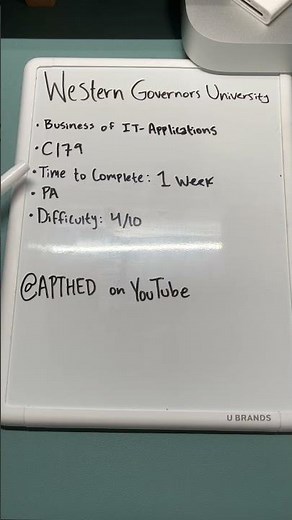 Western Governors University
• Business of IT-Applications
• C179
• Time to Complete: 1 Week
• PA
• Difficulty: 4/10
@APTHED on YouTube
U BRANDS